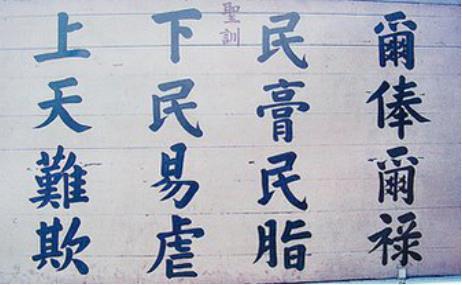 爾俸爾祿
民膏民脂
聖訓
下民易虐
上天難欺